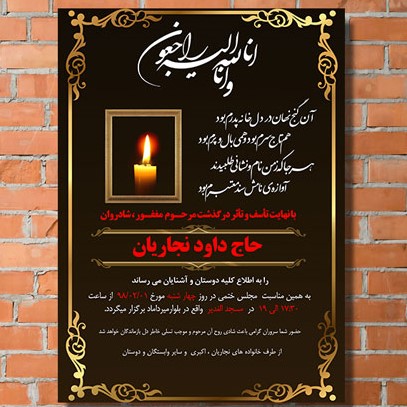 انا لله وانا الیه راجعون
آن گنج نهان در دل خانه پدرم بود
هم تاج سرم بود و همی بال و پرم بود
هر جا که ز من نام و نشانی طلبیدند
آوازه ی نامش سند معتبرم بود
با نهایت تأسف و تأثر درگذشت مرحوم مغفور، شادروان
حاج داود نجاریان
را به اطلاع کلیه دوستان و آشنایان می رساند
به همین مناسبت مجلس ختمی در روز چهارشنبه مورخ ۹۸/۰۲/۰۱ از ساعت
۱۷:۳۰ الی ۱۹ در مسجد الغدیر واقع در بلوارمیرداماد برگزار میگردد.
حضور شما سروران گرامی باعث شادی روح آن مرحوم و موجب تسلی خاطر دل بازماندگان خواهد شد
از طرف خانواده های نجاریان ، اکبری و سایر وابستگان و دوستان